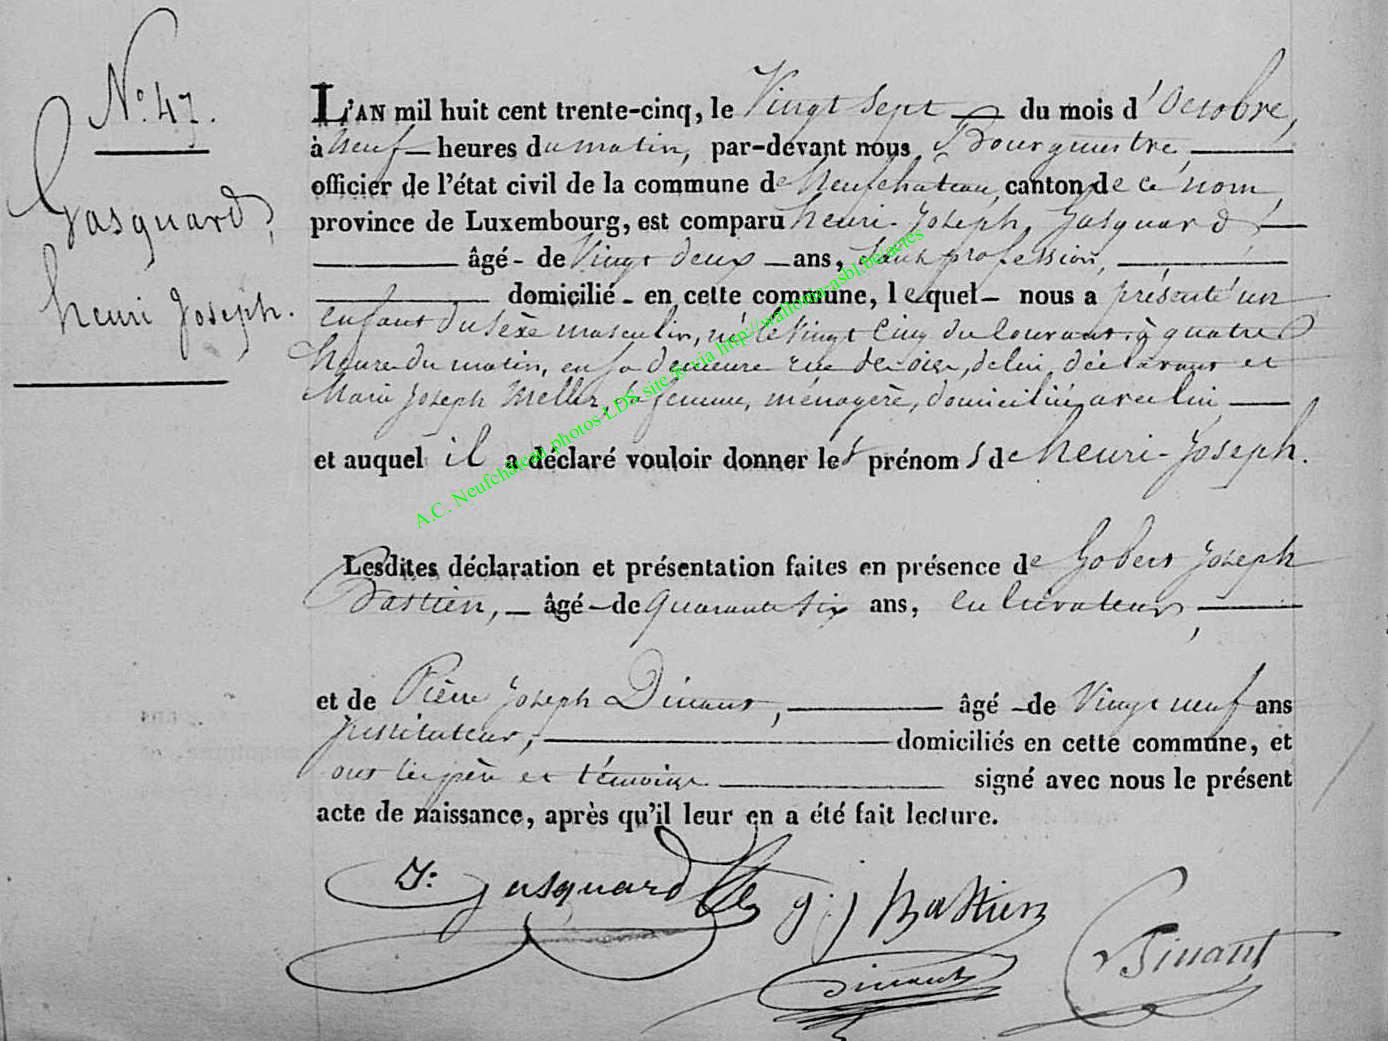 N.° 47.
Gasquard,
henri Joseph.
L'AN mil huit cent trente-cinq, le Vingt sept du mois d'octobre,
à neuf heures du matin, par-devant nous Bourgmestre,
officier de l'état civil de la commune de Neufchateau, canton de ce nom,
province de Luxembourg, est comparu henri-Joseph Gasquard,
âgé - de Vingt deux ans, sans profession,
domicilié - en cette commune, lequel - nous a présenté un
enfant du sexe masculin, né le vingt cinq du courant, à quatre
heures du matin, en sa demeure rue de de lui déclarant et
Marie Joseph Meller, sa femme, ménagère, domiciliée avec lui
et auquel il a déclaré vouloir donner les prénoms de henri-Joseph.
Lesdites déclaration et présentation faites en présence de Gobert Joseph
Bastien, âgé - de quarante six ans, cultivateur,
et de Pierre Joseph Dinant, âgé - de Vingt neuf ans
instituteur, domiciliés en cette commune, et
ont les père et témoins signé avec nous le présent
acte de naissance, après qu'il leur en a été fait lecture.
A.C. Neufchâteau photos LDS site via http://wallonia-asbl.be/actes
Gasquard g j Bastien
Dinant
Dinant